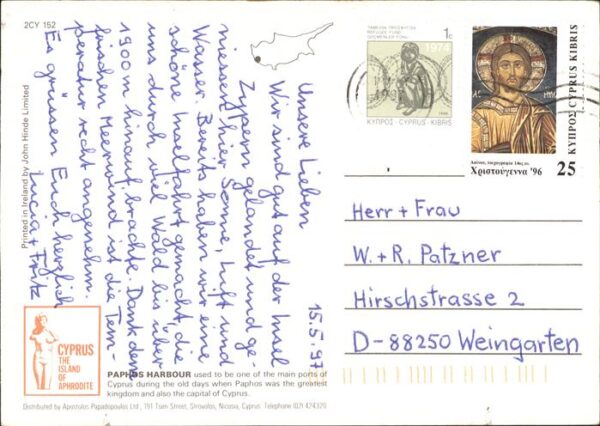 2CY 152
Printed in Ireland by John Hinde Limited
15.5.97
Unsere Lieben
Wir sind gut auf der Insel
Zypern gelandet und ge-
niessen hier Sonne, Luft und
Wasser. Bereits haben wir eine
schöne Inselfahrt gemacht, die
uns durch viel Wald bis über
1900m hinauf brachte. Dank dem
frischen Meerwind ist die Tem-
peratur recht angenehm.
Es grüssen Euch herzlich
Lucia + Fritz
1c
1974
ΚΥΠΡΟΣ·CYPRUS·KIBRIS
Χριστούγεννα '96
25
ΚΥΠΡΟΣ CYPRUS KIBRIS
Herr + Frau
W. + R. Patzner
Hirschstrasse 2
D-88250 Weingarten
CYPRUS
THE
ISLAND
OF
APHRODITE
PAPHOS HARBOUR used to be one of the main ports of
Cyprus during the old days when Paphos was the greatest
kingdom and also the capital of Cyprus.
Distributed by Apostolos Papadopoulos Ltd., 191 Tseri Street, Strovolos, Nicosia, Cyprus. Telephone (02) 424320